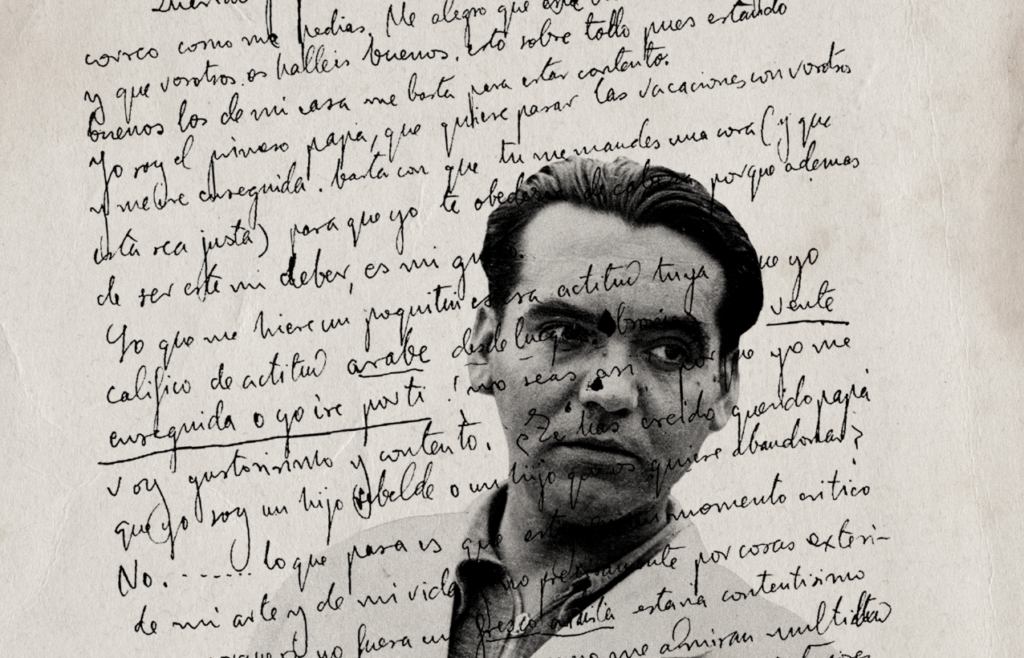 correo como me pedías. Me alegro que
y que vosotros os halléis buenos, esto sobre todo pues estando
buenos los de mi casa me basta para estar contento.
Yo soy el primero papá, que quiere pasar las vacaciones con vosotros
y me iré enseguida. basta con que tu me mandes una cosa (y que
esta sea justa) para que yo te porque además
de ser este mi deber, es mi
Yo que me hiere un poquitin es esa actitud tuya que yo
califico de actitud arabe desde luego vente
enseguida o yo iré por ti! no seas así porque yo me
voy gustosisimo y contento. ¿Te has creido querido papá
que yo soy un hijo rebelde o un hijo que os quiere abandonar?
No. ....... lo que pasa es que estoy en un momento critico
de mi arte y de mi vida no precisamente por cosas exteri-
no fuera un fresco estaria contentisimo
me admiran